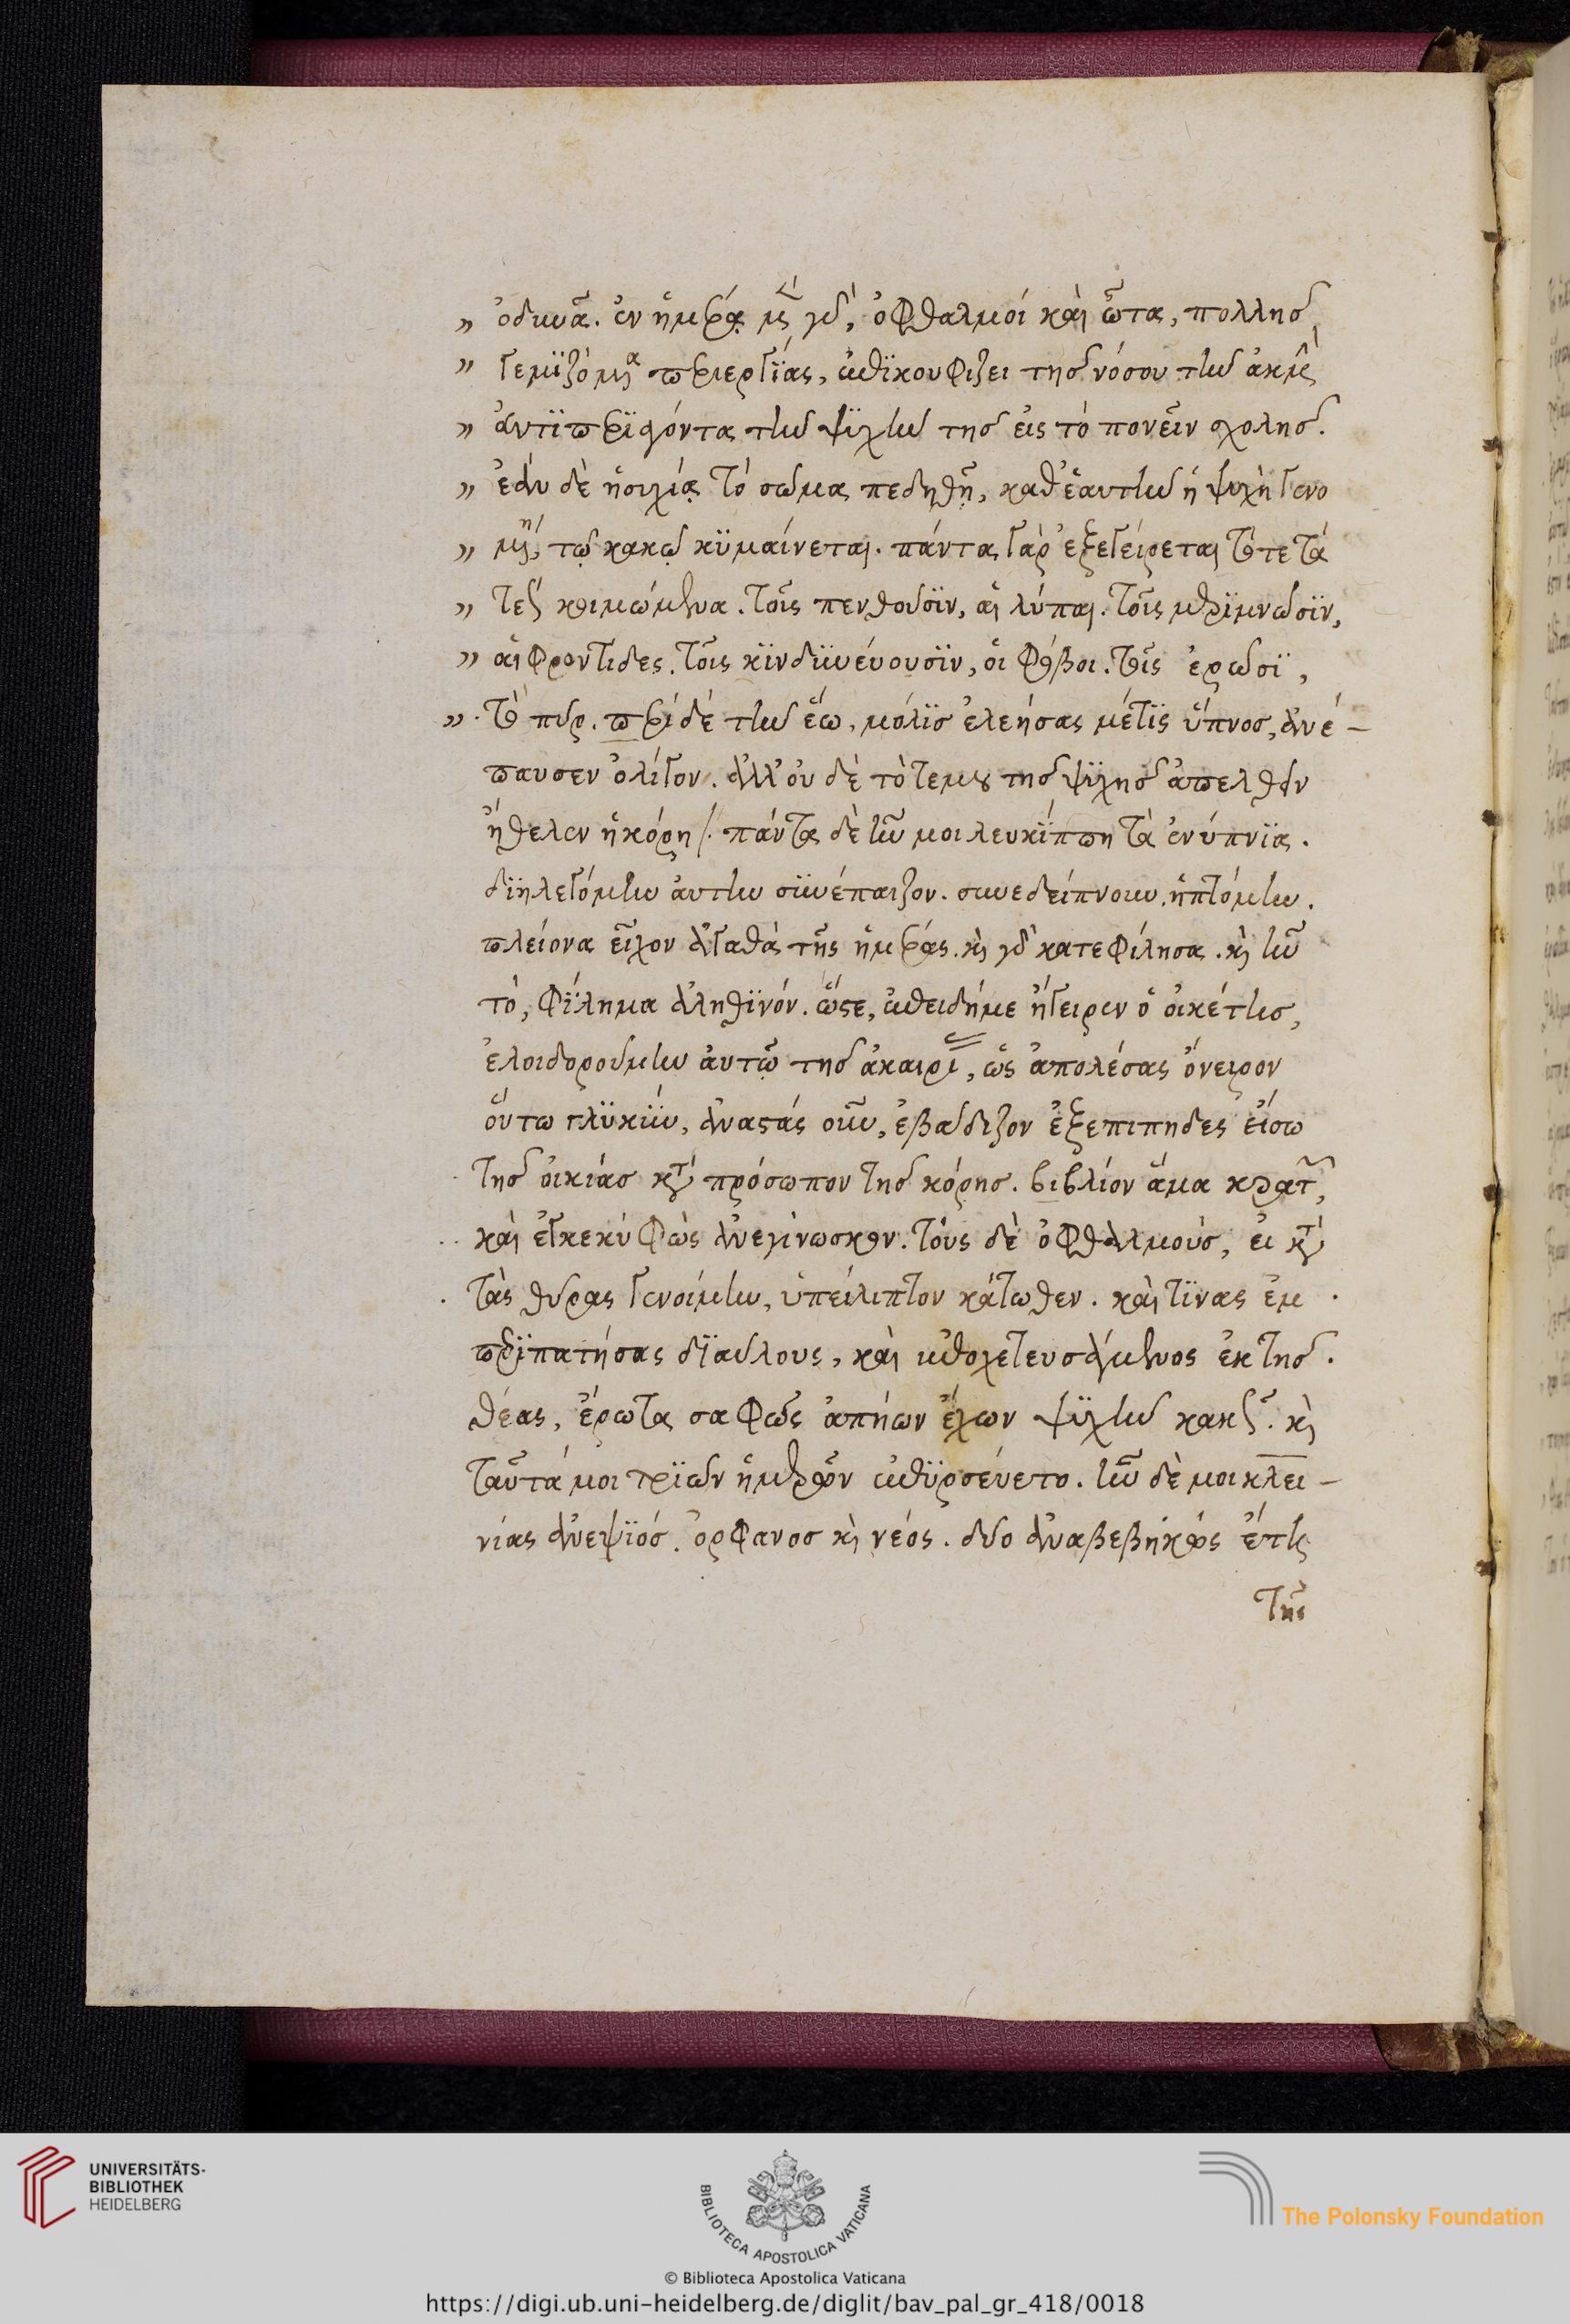 „ ὀδυνᾶ. ἐν ἡμέρα μὲν γὰρ, ὀφθαλμοί καὶ ὦτα, πολλῆς
„ γεμιζόμενα περιεργίας, ἐπικουφίζει τῆς νόσου τὴν ἀκμὴν
„ ἀντιπεριάγοντα τὴν ψυχὴν τῆς εἰς τὸ πονεῖν σχολῆς.
„ ἐὰν δὲ ἡσυχίᾳ τὸ σῶμα πεδηθῇ, καθ' ἑαυτὴν ἡ ψυχὴ γενο
„ μένη, τῷ κακῷ κυμαίνεται. πάντα γὰρ ἐξεγείρεται τότε τὰ
„ τέως κοιμώμενα. τοῖς πενθοῦσιν, αἱ λύπαι. τοῖς μεριμνῶσιν,
„ αἱ φροντίδες. τοῖς κινδυνεύουσιν, οἱ φόβοι. τοῖς ἐρῶσι,
„ τὸ πῦρ. περὶ δὲ τὴν ἕω, μόλις ἐλεήσας μέ τις ὕπνος, ἀνέ-
παυσεν ὀλίγον. ἀλλ' οὐδὲ τότε μου τῆς ψυχῆς ἀπελθεῖν
ἤθελεν ἡ κόρη. πάντα δὲ ἦν μοι λευκίππη τὰ ἐνύπνια.
διηλεγόμην αὐτὴν συνέπαιζον. συνεδείπνουν. ἡπτόμην.
πλείονα εἶχον ἀγαθὰ τῆς ἡμέρας. καὶ γὰρ κατεφίλησα. καὶ ἦν
τὸ, φίλημα ἀληθινόν. ὥστε, ἐπειδή με ἤγειρεν ὁ οἰκέτης,
ἐλοιδορούμην αὐτῷ τῆς ἀκαιρίας, ὡς ἀπολέσας ὄνειρον
οὕτω γλυκύν, ἀναστὰς οὖν, ἐβάδιζον ἐξεπίτηδες εἴσω
τῆς οἰκίας κατὰ πρόσωπον τῆς κόρης. βιβλίον ἅμα κρατῶν,
καὶ ἐγκεκυφὼς ἀνεγίνωσκον. τοὺς δὲ ὀφθαλμοὺς, εἰ κατὰ
τὰς θύρας γενοίμην, ὑπείλιπτον κάτωθεν. καί τινας ἐμ
περιπατήσας διαύλους, καὶ ἐποχετευσάμενος ἐκ τῆς
θέας, ἔρωτα σαφῶς ἀπήων ἔχων ψυχὴν κακῶς. καὶ
ταῦτά μοι τριῶν ἡμερῶν ἐπυρσεύετο. ἦν δέ μοι κλει-
νίας ἀνεψιός. ὀρφανὸς καὶ νέος. δύο ἀναβεβηκὼς ἔτη
τῆς
UNIVERSITÄTS-
BIBLIOTHEK
HEIDELBERG
BIBLIOTECA APOSTOLICA VATICANA
The Polonsky Foundation
© Biblioteca Apostolica Vaticana
https://digi.ub.uni-heidelberg.de/diglit/bav_pal_gr_418/0018